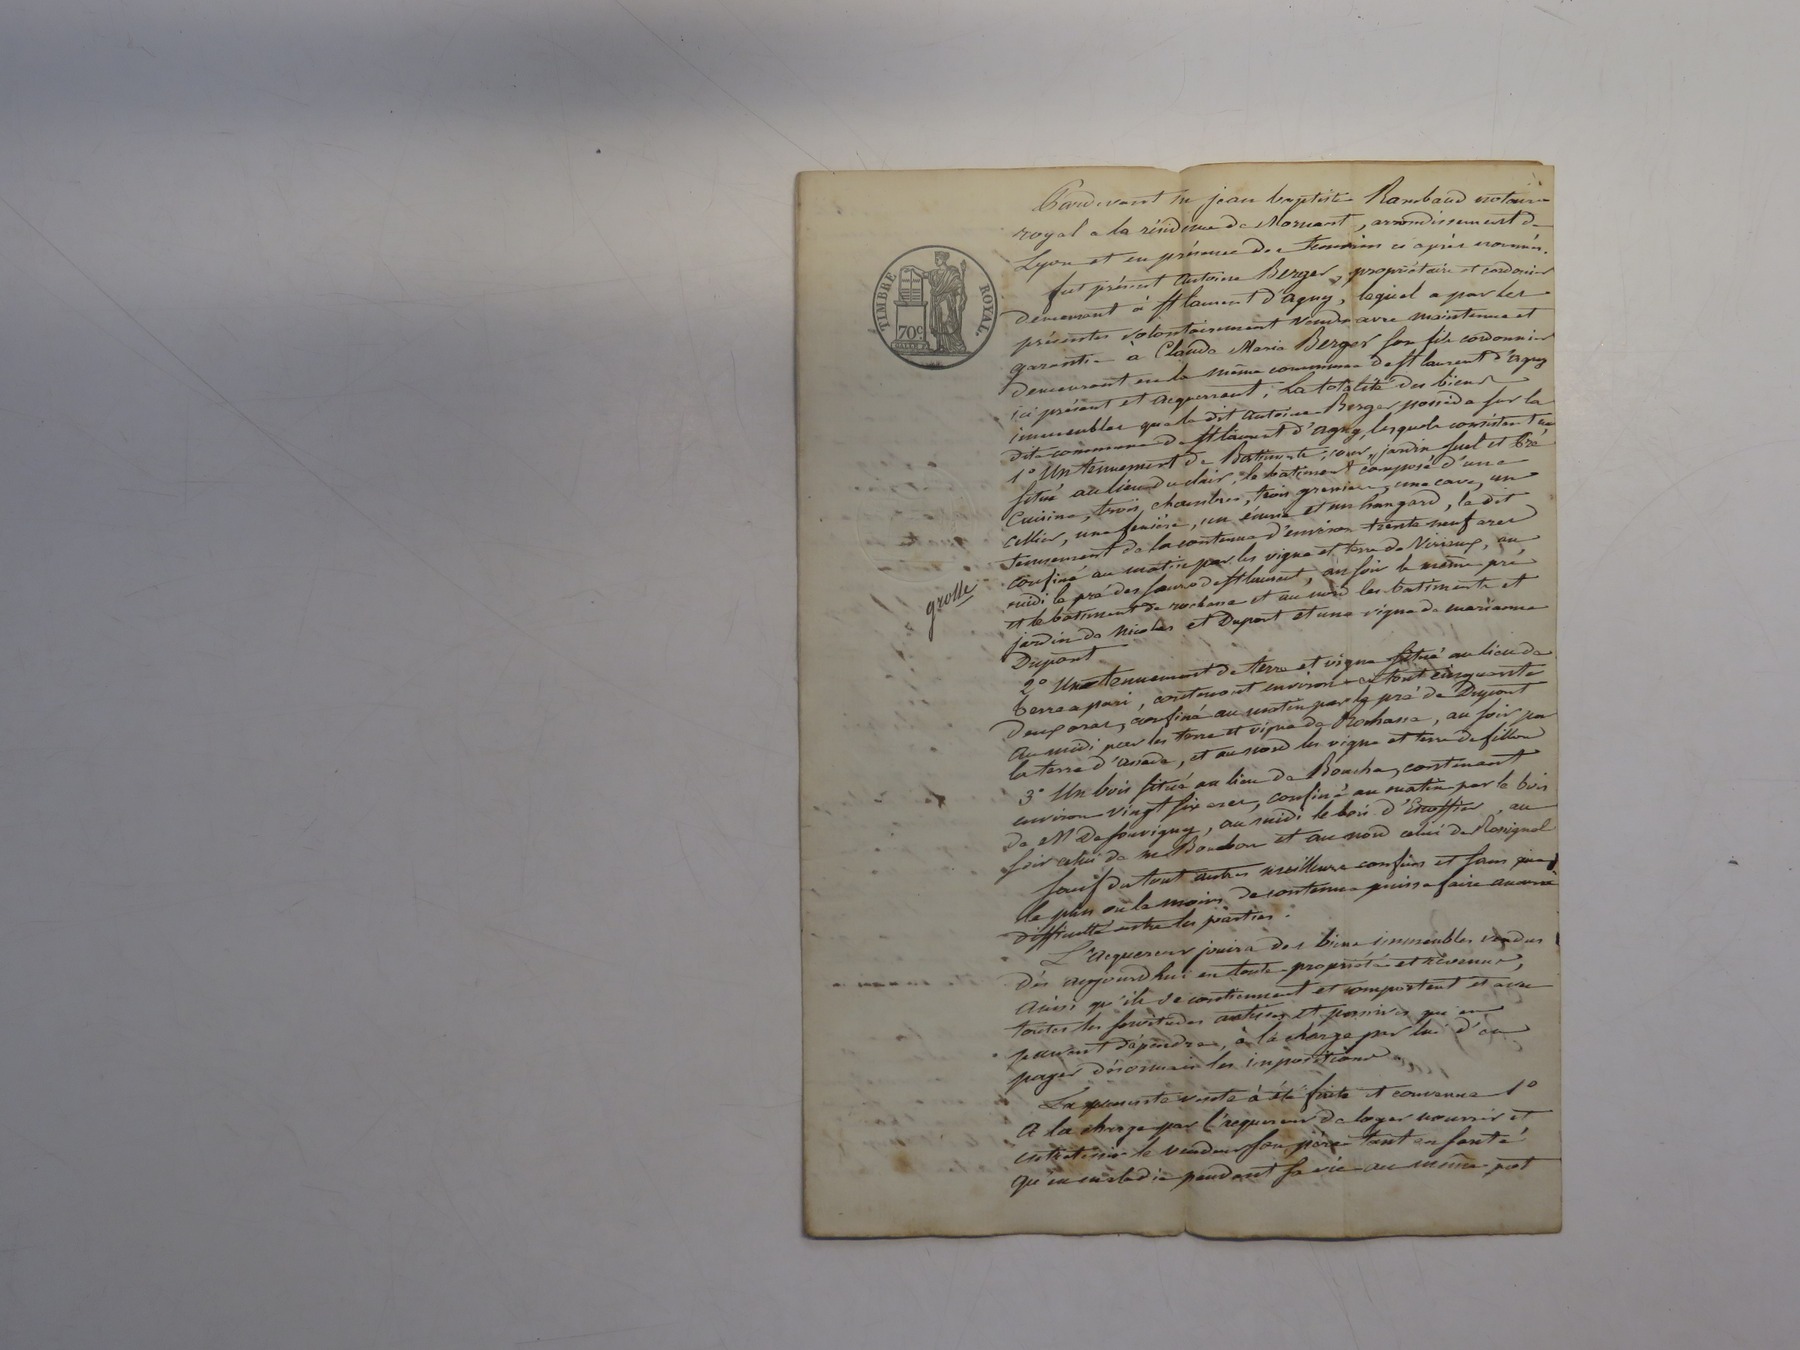 TIMBRE ROYAL.
70c
grolle
Pardevant Me jean baptiste Rambaud notaire
royal a la résidence de Mornant, arrondissement de
Lyon et en présence des temoins ci après nommés.
fut présent Antoine Berger, propriétaire et cordonier
demeurant à St laurent d'agny, lequel a par les
présentes volontairement vendu avec maintenue et
garantie à Claude Marie Berger son fils cordonnier
demeurant en la même commune de St laurent d'agny
ici présent et acquerrant, La totalité des biens
immeubles que le dit Antoine Berger possède sur la
dite commune de St laurent d'agny, lesquels consistent en
1° Un tennement de Batiments, cour, jardin suel et Pré
situé au lieu du clair, le batiment composé d'une
cuisine, trois chambres, trois greniers, une cave, un
cellier, une fenière, un écurie et un hangard, le dit
tennement de la contenue d'environ trente neuf ares
confiné au matin par les vigne et terre de Virieux, au
midi le pré des sœurs de St laurent, au soir le même pré
et le batiment de rochasse et au nord les batiments et
jardin de Nicolas et Dupont et une vigne de marianne
Dupont
2° Un tennement de terre et vigne situé au lieu de
terre a pari, contenant environ en tout cinquante
deux ares, confiné au matin par le pré de Dupont
au midi par les terre et vigne de Rochasse, au soir par
la terre d' et au nord les vigne et terre de fillon
3° Un bois situé au lieu de Bouche, contenant
environ vingt six ares, confiné au matin par le bois
de Mr De souvigny, au midi le bois d'Escoffier, au
soir celui de me Bonbon et au nord celui de Rosignol
sauf du tout autres meilleurs confins et sans que
le plus ou le moins de contenue puisse faire aucune
difficulté entre les parties.
L'acquereur jouira des biens immeubles vendus
dès aujourd'hui en toute propriété et revenus,
ainsi qu'ils se contiennent et comportent et avec
toutes les servitudes actives et passives qui en
peuvent dépendre, à la charge par lui d'en
payer désormais les impositions.
La presente vente à été faite et convenue 1°
A la charge par l'acquereur de loger nourrir et
entretenir le vendeur son père tant en santé
qu'en maladie pendant sa vie au même pot